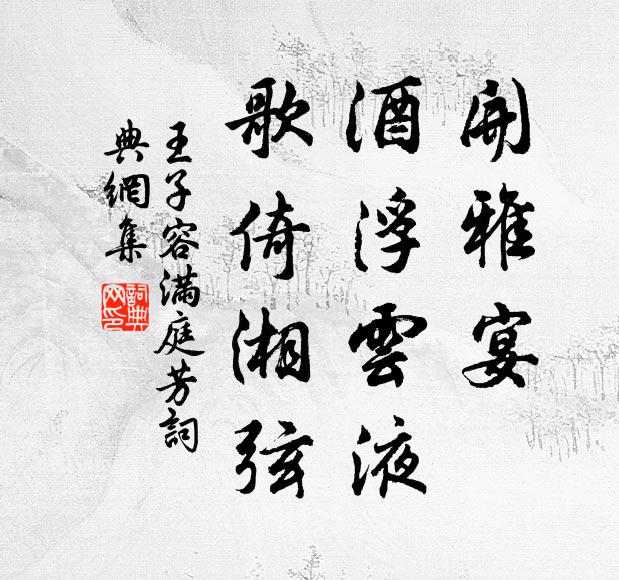 開雅宴
酒浮雲液
歌倚湘弦
王子容滿庭芳詞
典網集
詞典网印